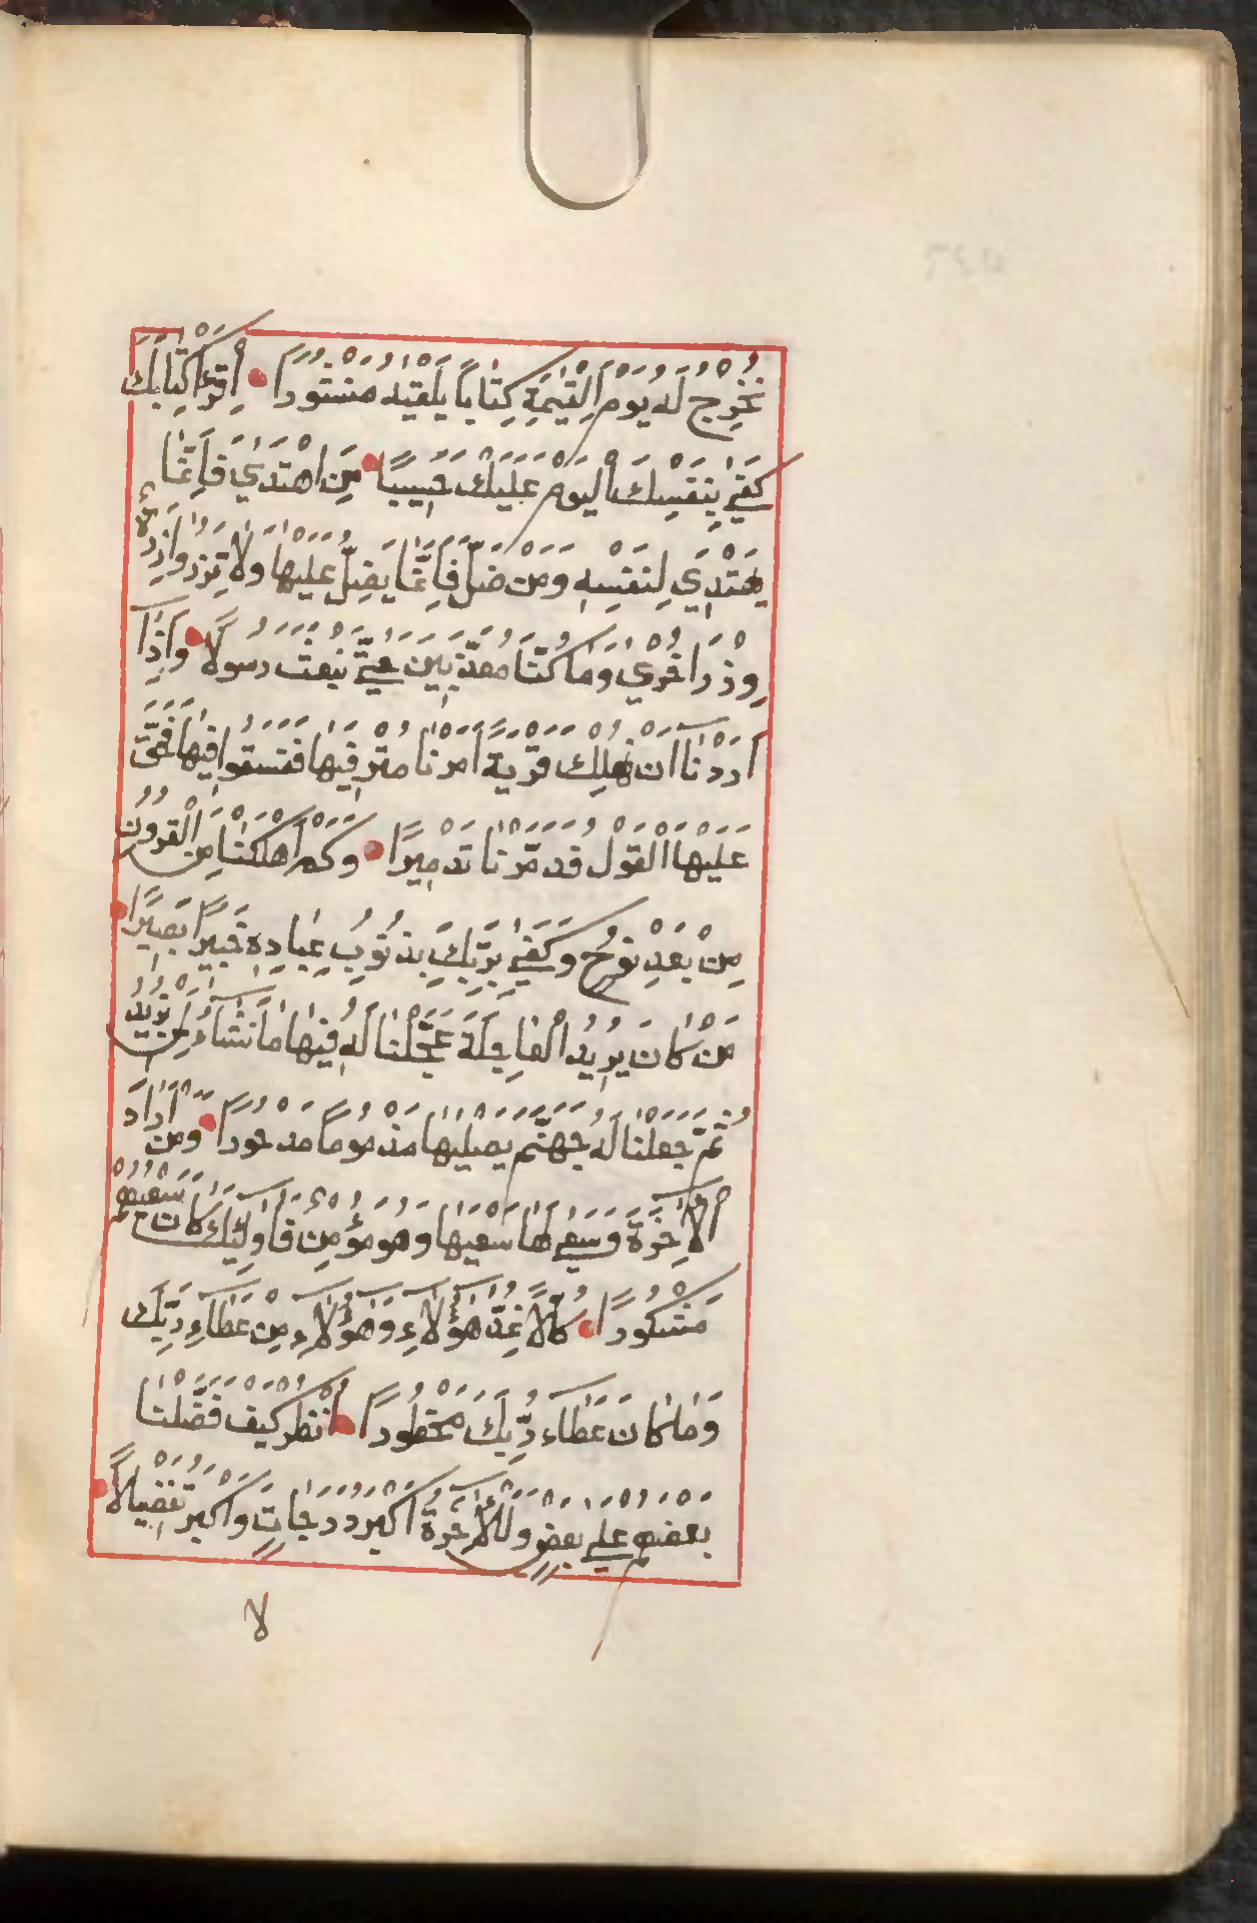 نُخْرِجُ لَهُ يَوْمَ الْقِيٰمَةِ كِتَابًا يَلْقَيٰهُ مَنْشُورًا اِقْرَأْ كِتَابَكَ
كَفٰى بِنَفْسِكَ الْيَوْمَ عَلَيْكَ حَسِيبًا مَنِ اهْتَدٰي فَاِنَّمَا
يَهْتَدِي لِنَفْسِهِ وَمَنْ ضَلَّ فَاِنَّمَا يَضِلُّ عَلَيْهَا وَلَا تَزِرُ وَازِرَةٌ
وِزْرَ اُخْرٰي وَمَا كُنَّا مُعَذِّبِينَ حَتّٰى نَبْعَثَ رَسُولًا وَاِذَٓا
اَرَدْنَٓا اَنْ نُهْلِكَ قَرْيَةً اَمَرْنَا مُتْرَفِيهَا فَفَسَقُوا فِيهَا فَحَقَّ
عَلَيْهَا الْقَوْلُ فَدَمَّرْنَا تَدْمِيرًا وَكَمْ اَهْلَكْنَا مِنَ الْقُرُونِ
مِنْ بَعْدِ نُوحٍ وَكَفٰى بِرَبِّكَ بِذُنُوبِ عِبَادِهِ خَبِيرًا بَصِيرًا
مَنْ كَانَ يُرِيدُ الْعَاجِلَةَ عَجَّلْنَا لَهُ فِيهَا مَا نَشَٓاءُ لِمَنْ نُرِيدُ
ثُمَّ جَعَلْنَا لَهُ جَهَنَّمَ يَصْلَيٰهَا مَذْمُومًا مَدْحُورًا وَمَنْ اَرَادَ
الْاٰخِرَةَ وَسَعٰى لَهَا سَعْيَهَا وَهُوَ مُؤْمِنٌ فَاُولٰٓئِكَ كَانَ سَعْيُهُمْ
مَشْكُورًا كُلًّا نُمِدُّ هٰٓؤُلَٓاءِ وَهٰٓؤُلَٓاءِ مِنْ عَطَٓاءِ رَبِّكَ
وَمَا كَانَ عَطَٓاءُ رَبِّكَ مَحْظُورًا اُنْظُرْ كَيْفَ فَضَّلْنَا
بَعْضَهُمْ عَلٰى بَعْضٍ وَلَلْاٰخِرَةُ اَكْبَرُ دَرَجَاتٍ وَاَكْبَرُ تَفْضِيلًا
لا